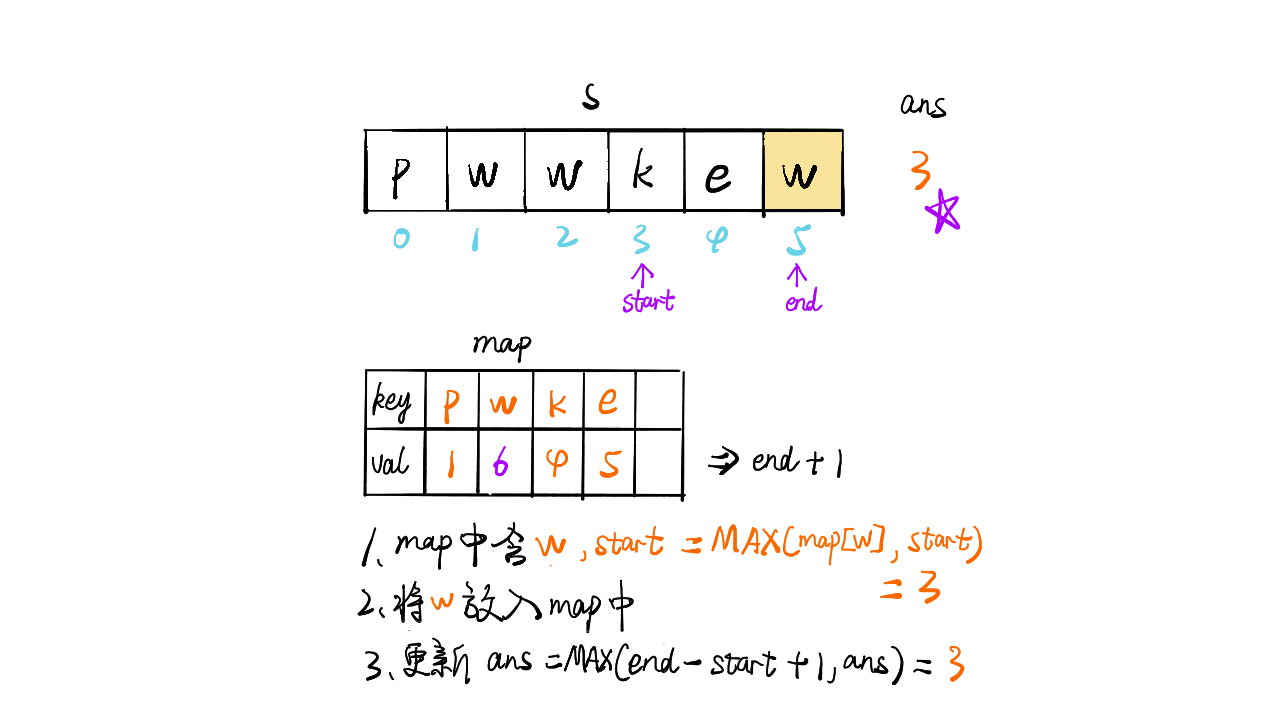 s
ans
p w w k e w
3
0 1 2 3 4 5
start end
map
key p w k e
val 1 6 4 5
⇒ end + 1
1、map中含w,start = MAX(map[w], start)
= 3
2、将w放入map中
3、更新 ans = MAX(end - start + 1, ans) = 3